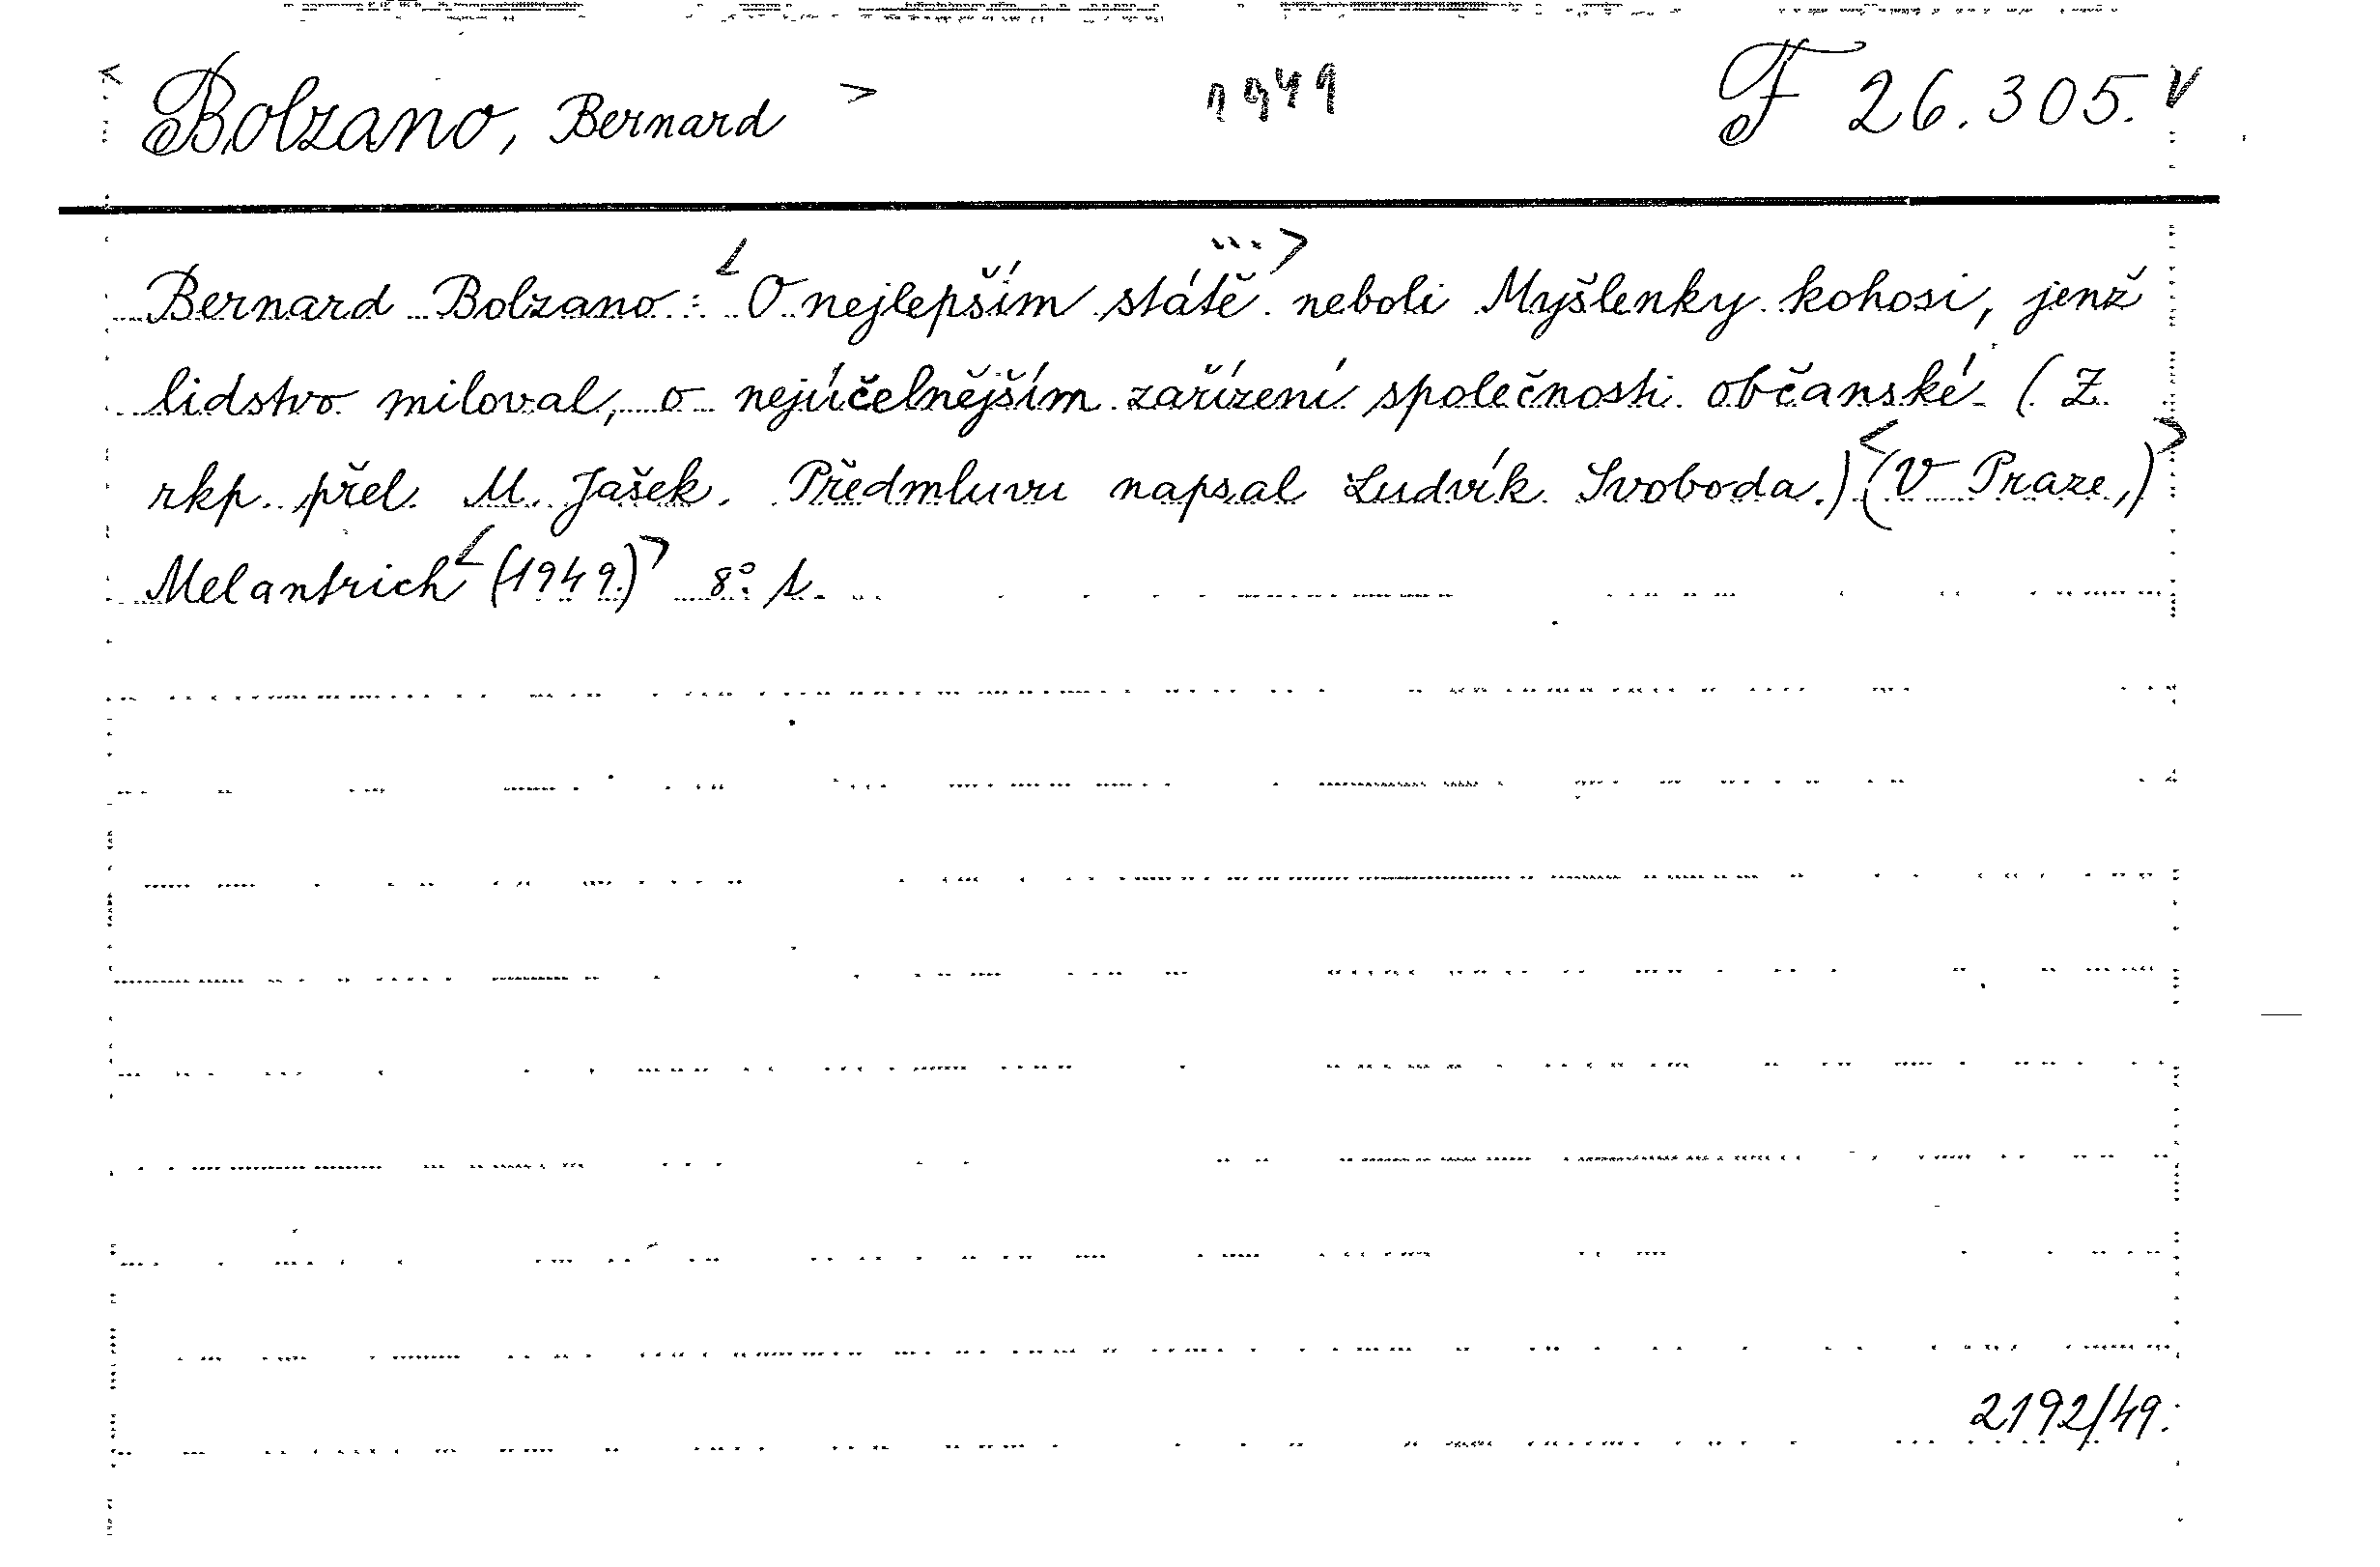 < Bolzano, Bernard > 1949 F 26.305.v
Bernard Bolzano: <O nejlepším státě ...> neboli Myšlenky kohosi, jenž
lidstvo miloval, o nejúčelnějším zařízení společnosti občanské. (Z
rkp. přel. M. Jašek. Předmluvu napsal Ludvík Svoboda.) <(V Praze,)>
Melantrich <(1949.)> 8°. s.
2192/49.